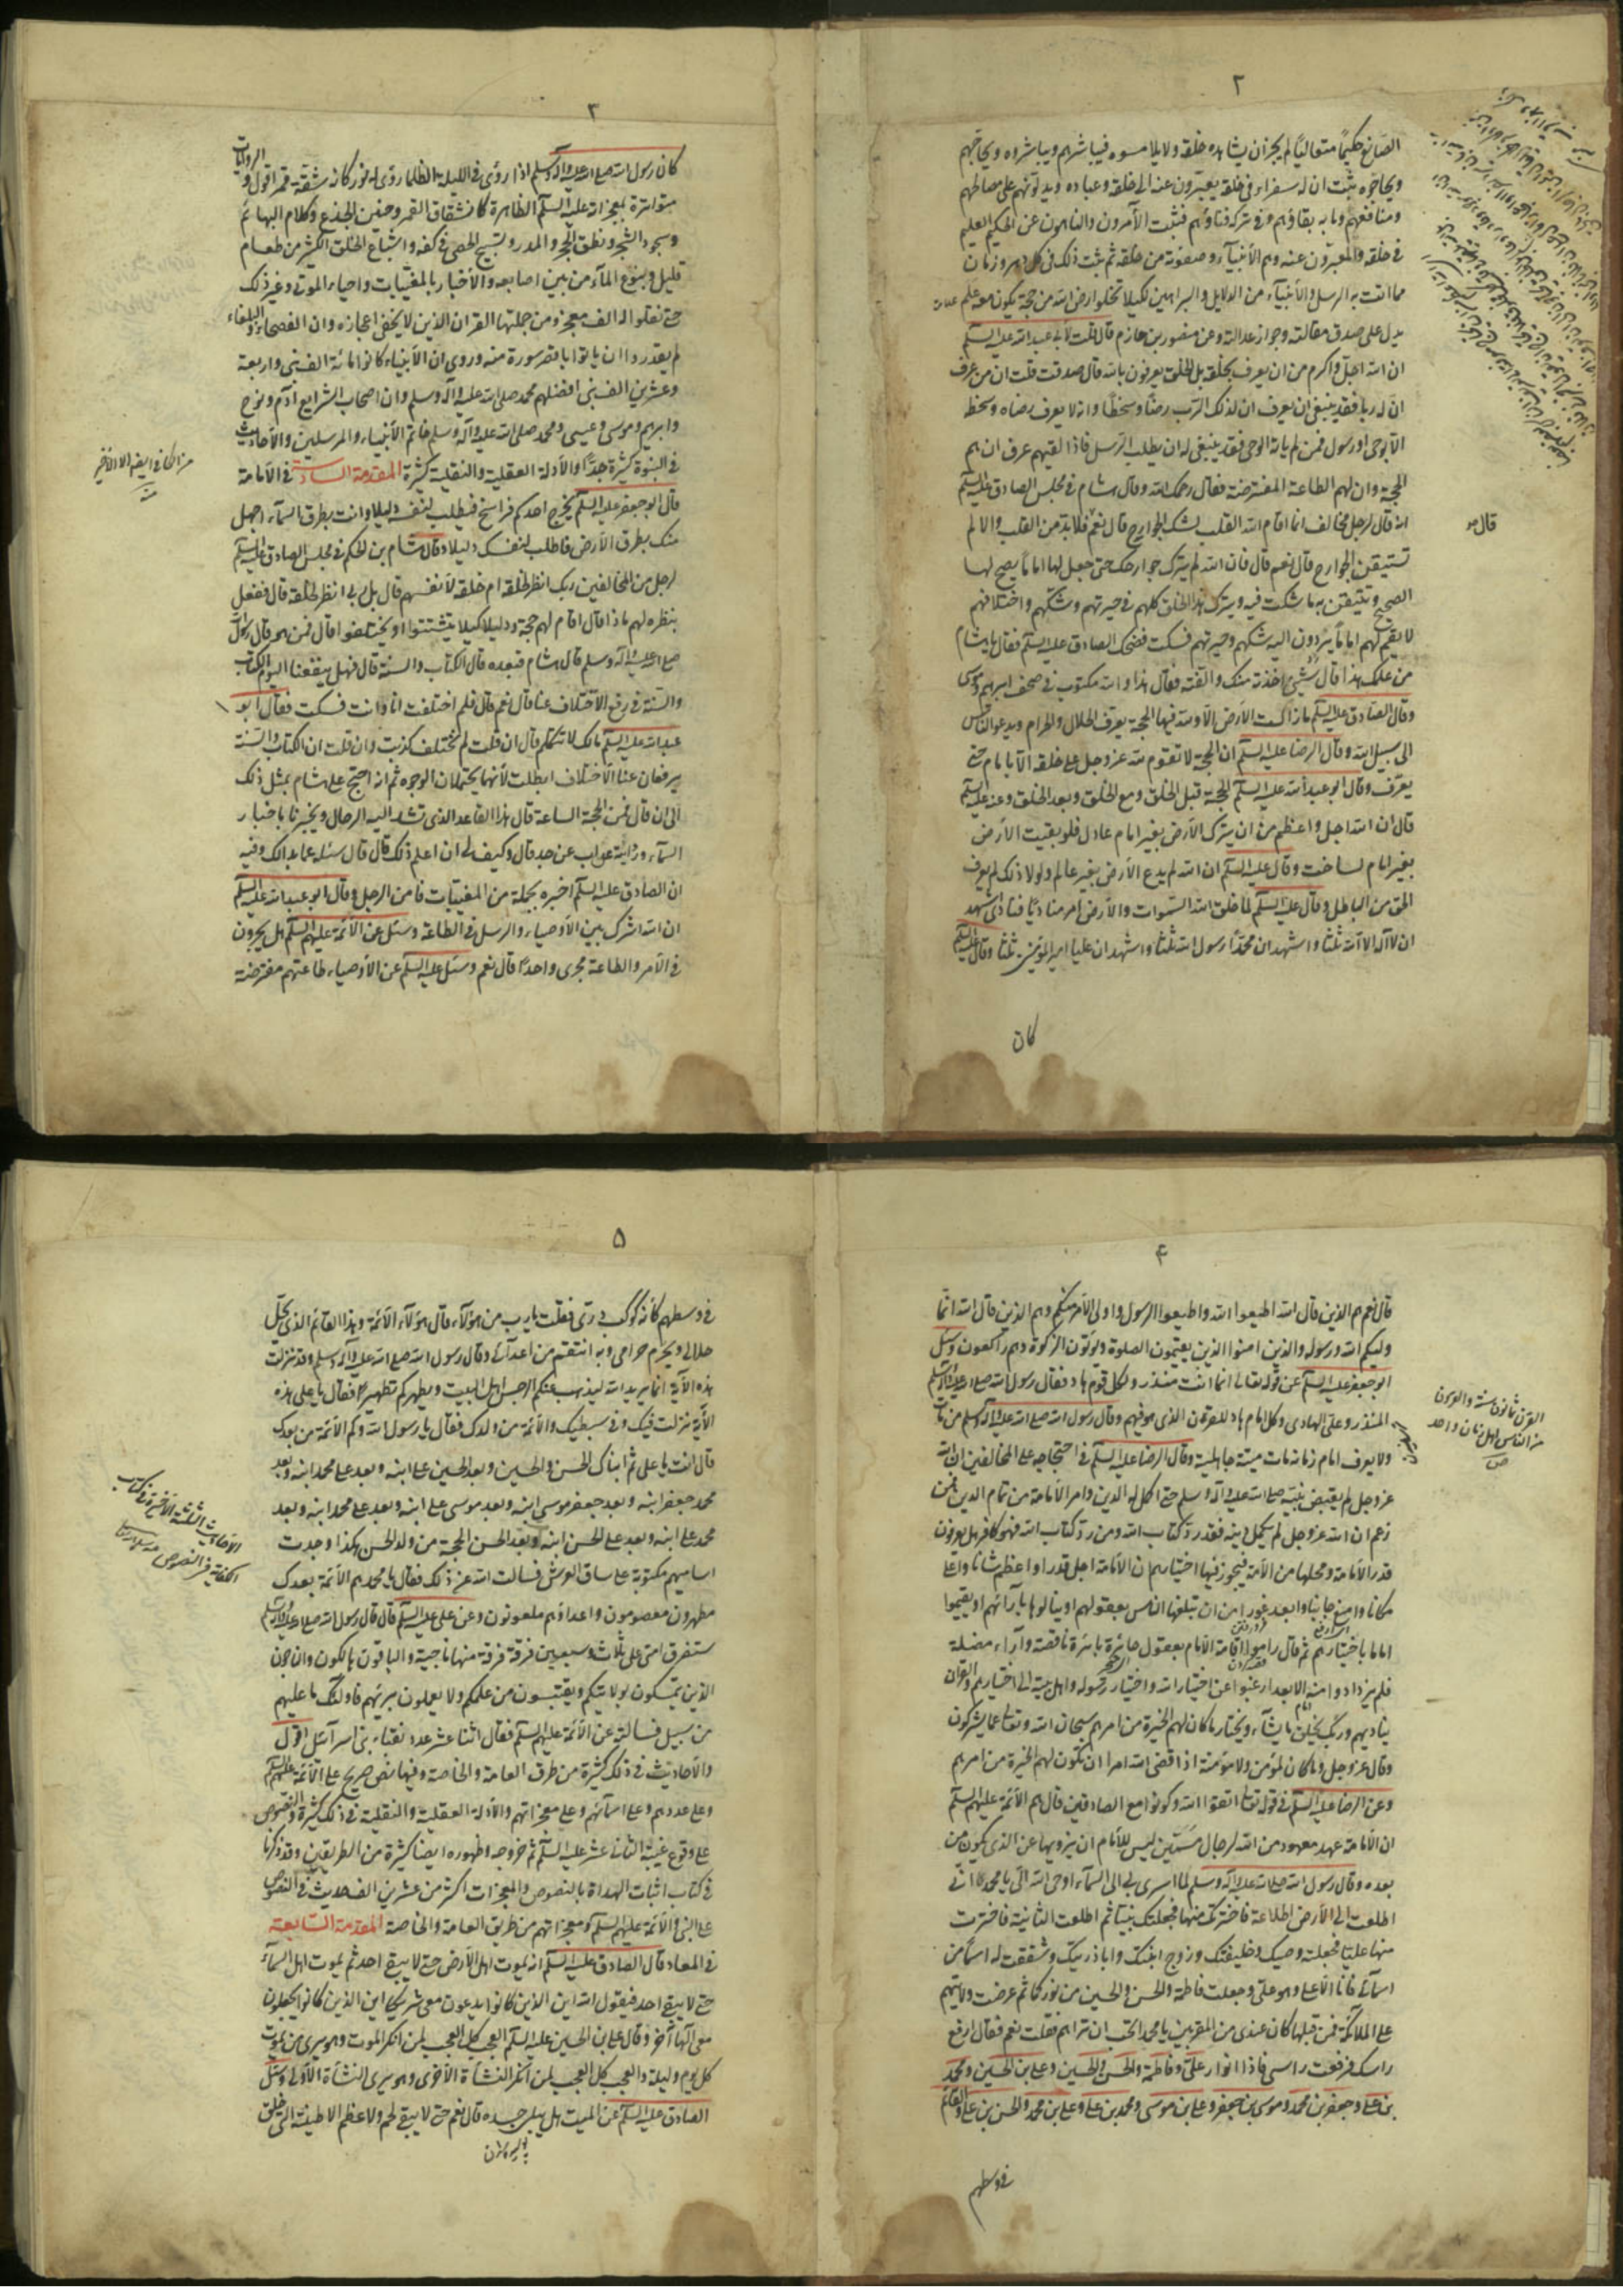 ٢
الصانع حكيما متعاليا لم يجز ان يشاهده خلقه ولا يلامسوه فيباشرهم ويباشروه ويحاجهم
ويحاجوه ثبت ان له سفراء في خلقه يعبرون عنه الى خلقه وعباده ويدلونهم على مصالحهم
ومنافعهم وما به بقاؤهم وفي تركه فناؤهم فثبت الآمرون والناهون عن الحكيم العليم
في خلقه والمعبرون عنه وهم الأنبياء وصفوته من خلقه ثم ثبت ذلك في كل دهر وزمان
مما اتت به الرسل والأنبياء من الدلايل والبراهين لكيلا تخلو ارض الله من حجة يكون معه علم
يدل على صدق مقالته وجواز عدالته وعن منصور بن حازم قال قلت لأبي عبد الله عليه السلم
ان الله اجل واكرم من ان يعرف بخلقه بل الخلق يعرفون بالله قال صدقت قلت ان من عرف
ان له ربا فقد ينبغي ان يعرف ان لذلك الرب رضا وسخطا وانه لا يعرف رضاه وسخطه
الا بوحي او رسول فمن لم ياته الوحي فقد ينبغي له ان يطلب الرسل فاذا لقيهم عرف ان هم
الحجة وان لهم الطاعة المفترضة فقال رحمك الله وقال هشام في مجلس الصادق عليه السلم
انه قال لرجل مخالف انما اقام الله القلب لشك الجوارح قال نعم فلابد من القلب والا لم
تستيقن الجوارح قال نعم قال فان الله لم يترك جوارحك حتى جعل لها اماما يصح لها
الصحيح وتتيقن به ما شكت فيه ويترك هذا الخلق كلهم في حيرتهم وشكهم واختلافهم
لا يقيم لهم اماما يردون اليه شكهم وحيرتهم فسكت فضحك الصادق عليه السلم فقال يا هشام
من علمك هذا قال شيئ اخذته منك والفته فقال هذا والله مكتوب في صحف ابرهيم وموسى
وقال الصادق عليه السلم ما زالت الأرض الا ولله فيها الحجة يعرف الحلال والحرام ويدعو الناس
الى سبيل الله وقال الرضا عليه السلم ان الحجة لا تقوم لله عز وجل على خلقه الا بامام حتى
يعرف وقال ابو عبد الله عليه السلم الحجة قبل الخلق ومع الخلق وبعد الخلق وعنه عليه السلم
قال ان الله اجل واعظم من ان يترك الأرض بغير امام عادل فلو بقيت الأرض
بغير امام لساخت وقال عليه السلم ان الله لم يدع الأرض بغير عالم ولولا ذلك لم يعرف
الحق من الباطل وقال عليه السلم لما خلق الله السموات والأرض امر مناديا فنادى اشهد
ان لا اله الا الله ثلثا واشهد ان محمدا رسول الله ثلثا واشهد ان عليا امير المؤمنين ثلثا وقال عليه السلم
كان
٣
كان رسول الله صلى الله عليه وآله وسلم اذا رؤى في الليلة الظلماء رؤى له نور كانه شقة قمر اقول والروايات
متواترة بمعجزاته عليه السلم الظاهرة كانشقاق القمر وحنين الجذع وكلام البهائم
وسجود الشجر ونطق الحجر والمدر وتسبيح الحصى في كفه واشباع الخلق الكثير من طعام
قليل ونبوع الماء من بين اصابعه والأخبار بالمغيبات واحياء الموتى وغير ذلك
حتى نقلوا له الف معجز ومن جملتها القران الذين لا يخفى اعجازه وان الفصحاء والبلغاء
لم يقدروا ان ياتوا باقصر سورة منه وروى ان الأنبياء كانوا مائة الف نبي واربعة
وعشرين الف نبي افضلهم محمد صلى الله عليه وآله وسلم وان اصحاب الشرايع آدم ونوح
وابرهيم وموسى وعيسى ومحمد صلى الله عليه وآله وسلم خاتم الأنبياء والمرسلين والأحاديث
في النبوة كثيرة جدا والأدلة العقلية والنقلية كثيرة المقدمة السادسة في الأمامة
قال ابو جعفر عليه السلم يخرج احدكم فراسخ فيطلب لنفسه دليلا وانت بطرق السماء اجهل
منك بطرق الأرض فاطلب لنفسك دليلا وقال هشام بن الحكم في مجلس الصادق عليه السلم
لرجل من المخالفين ربك انظر لخلقه ام خلقه لأنفسهم قال بل ربى انظر لخلقه قال ففعل
بنظره لهم ماذا قال اقام لهم حجة ودليلا كيلا يتشتتوا او يختلفوا قال فمن هو قال رسول الله
صلى الله عليه وآله وسلم قال هشام فبعده قال الكتاب والسنة قال فهل ينفعنا اليوم الكتاب
والسنة في رفع الأختلاف عنا قال نعم قال فلم اختلفت انا وانت فسكت فقال ابو
عبد الله عليه السلم مالك لا تتكلم قال ان قلت لم نختلف كذبت وان قلت ان الكتاب والسنة
يرفعان عنا الأختلاف ابطلت لأنهما يحتملان الوجوه ثم انه احتج على هشام بمثل ذلك
الى ان قال فمن الحجة الساعة قال هذا القاعد الذي تشد اليه الرحال ويخبرنا باخبار
السماء وراثة عن اب عن جد قال وكيف لي ان اعلم ذلك قال قال سله عما بدالك وفيه
ان الصادق عليه السلم اخبره بجملة من المغيبات فامن الرجل وقال ابو عبد الله عليه السلم
ان الله اشرك بين الأوصياء والرسل في الطاعة وسئل عن الأئمة عليهم السلم هل يجرون
في الأمر والطاعة مجرى واحدا قال نعم وسئل عليه السلم عن الأوصياء طاعتهم مفترضة
٤
قال نعم هم الذين قال الله اطيعوا الله واطيعوا الرسول واولى الأمر منكم وهم الذين قال الله انما
وليكم الله ورسوله والذين امنوا الذين يقيمون الصلوة ويؤتون الزكوة وهم راكعون وسئل
ابو جعفر عليه السلم عن قوله تعالى انما انت منذر ولكل قوم هاد فقال رسول الله صلى الله عليه وآله وسلم
المنذر وعلى الهادى وكل امام هاد للقرن الذي هو فيهم وقال رسول الله صلى الله عليه وآله وسلم من مات
ولا يعرف امام زمانه مات ميتة جاهلية وقال الرضا عليه السلم في احتجاجه على المخالفين ان الله
عز وجل لم يقبض نبيه صلى الله عليه وآله وسلم حتى اكمل له الدين وامر الأمامة من تمام الدين فمن
زعم ان الله عز وجل لم يكمل دينه فقد رد كتاب الله ومن رد كتاب الله فهو كافر هل يعرفون
قدر الأمامة ومحلها من الأمة فيجوز فيها اختيارهم ان الأمامة اجل قدرا واعظم شانا واعلى
مكانا وامنع جانبا وابعد غورا من ان يبلغها الناس بعقولهم او ينالوها بآرائهم او يقيموا
اماما باختيارهم ثم قال راموا اقامة الأمام بعقول حائرة بائرة ناقصة وآراء مضلة
فلم يزدادوا منه الا بعدا رغبوا عن اختيار الله واختيار رسوله واهل بيته الى اختيارهم والقران
يناديهم وربك يخلق ما يشاء ويختار ما كان لهم الخيرة من امرهم سبحان الله وتعالى عما يشركون
وقال عز وجل وما كان لمؤمن ولا مؤمنة اذا قضى الله امرا ان تكون لهم الخيرة من امرهم
وعن الرضا عليه السلم في قوله تعالى اتقوا الله وكونوا مع الصادقين قال هم الأئمة عليهم السلم
ان الأمامة عهد معهود من الله لرجال مسمين ليس للأمام ان يزويها عن الذي يكون من
بعده وقال رسول الله صلى الله عليه وآله وسلم لما اسرى بي الى السماء اوحى الله الى يا محمد انى
اطلعت الى الأرض اطلاعة فاخترتك منها فجعلتك نبيا ثم اطلعت الثانية فاخترت
منها عليا فجعلته وصيك وخليفتك وزوج ابنتك وابا ذريتك وشققت له اسما من
اسمائى فانا الأعلى وهو على وجعلت فاطمة والحسن والحسين من نوركما ثم عرضت ولايتهم
على الملائكة فمن قبلها كان عندى من المقربين يا محمد اتحب ان تراهم فقلت نعم فقال ارفع
راسك فرفعت راسى فاذا انوار على وفاطمة والحسن والحسين وعلى بن الحسين ومحمد
بن على وجعفر بن محمد وموسى بن جعفر وعلى بن موسى ومحمد بن على وعلى بن محمد والحسن بن على والقائم
في وسطهم
٥
في وسطهم كانه كوكب درى فقلت يا رب من هؤلاء قال هؤلاء الأئمة وهذا القائم الذى يحل
حلالى ويحرم حرامى وبه انتقم من اعدائى وقال رسول الله صلى الله عليه وآله وسلم وقد نزلت
هذه الآية انما يريد الله ليذهب عنكم الرجس اهل البيت ويطهركم تطهيرا فقال يا على هذه
الآية نزلت فيك وفي سبطيك والأئمة من ولدك فقال يا رسول الله وكم الأئمة من بعدك
قال انت يا على ثم ابناك الحسن والحسين وبعد الحسين على ابنه وبعد على محمد ابنه وبعد
محمد جعفر ابنه وبعد جعفر موسى ابنه وبعد موسى على ابنه وبعد على محمد ابنه وبعد
محمد على ابنه وبعد على الحسن ابنه وبعد الحسن الحجة من ولد الحسن هكذا وجدت
اساميهم مكتوبة على ساق العرش فسالت الله عن ذلك فقال يا محمد هم الأئمة بعدك
مطهرون معصومون واعداؤهم ملعونون وعن على عليه السلم قال قال رسول الله صلى الله عليه وآله وسلم
ستفرق امتى على ثلاث وسبعين فرقة فرقة منها ناجية والباقون هالكون والناجون
الذين يتمسكون بولايتكم ويقتبسون من علمكم ولا يعملون برايهم فاولئك ما عليهم
من سبيل فسالته عن الأئمة عليهم السلم فقال اثنا عشر عدد نقباء بنى اسرائيل اقول
والأحاديث في ذلك كثيرة من طرق العامة والخاصة وفيها نص صريح على الأئمة عليهم السلم
وعلى عددهم وعلى اسمائهم وعلى معجزاتهم والأدلة العقلية والنقلية في ذلك كثيرة والنصوص
على وقوع غيبة الثانى عشر عليه السلم ثم خروجه وظهوره ايضا كثيرة من الطريقين وقد ذكرنا
في كتاب اثبات الهداة بالنصوص والمعجزات اكثر من عشرين الف حديث في النصوص
على النبى والأئمة عليهم السلم ومعجزاتهم من طريق العامة والخاصة المقدمة السابعة
في المعاد قال الصادق عليه السلم انه يموت اهل الأرض حتى لا يبقى احد ثم يموت اهل السماء
حتى لا يبقى احد فيقول الله اين الذين كانوا يدعون معى شريكا اين الذين كانوا يجعلون
معى الها آخر وقال على بن الحسين عليه السلم العجب كل العجب لمن انكر الموت وهو يرى من يموت
كل يوم وليلة والعجب كل العجب لمن انكر النشأة الأخرى وهو يرى النشأة الأولى وسئل
الصادق عليه السلم عن الميت هل يبلى جسده قال نعم حتى لا يبقى لحم ولا عظم الا طينته التى خلق